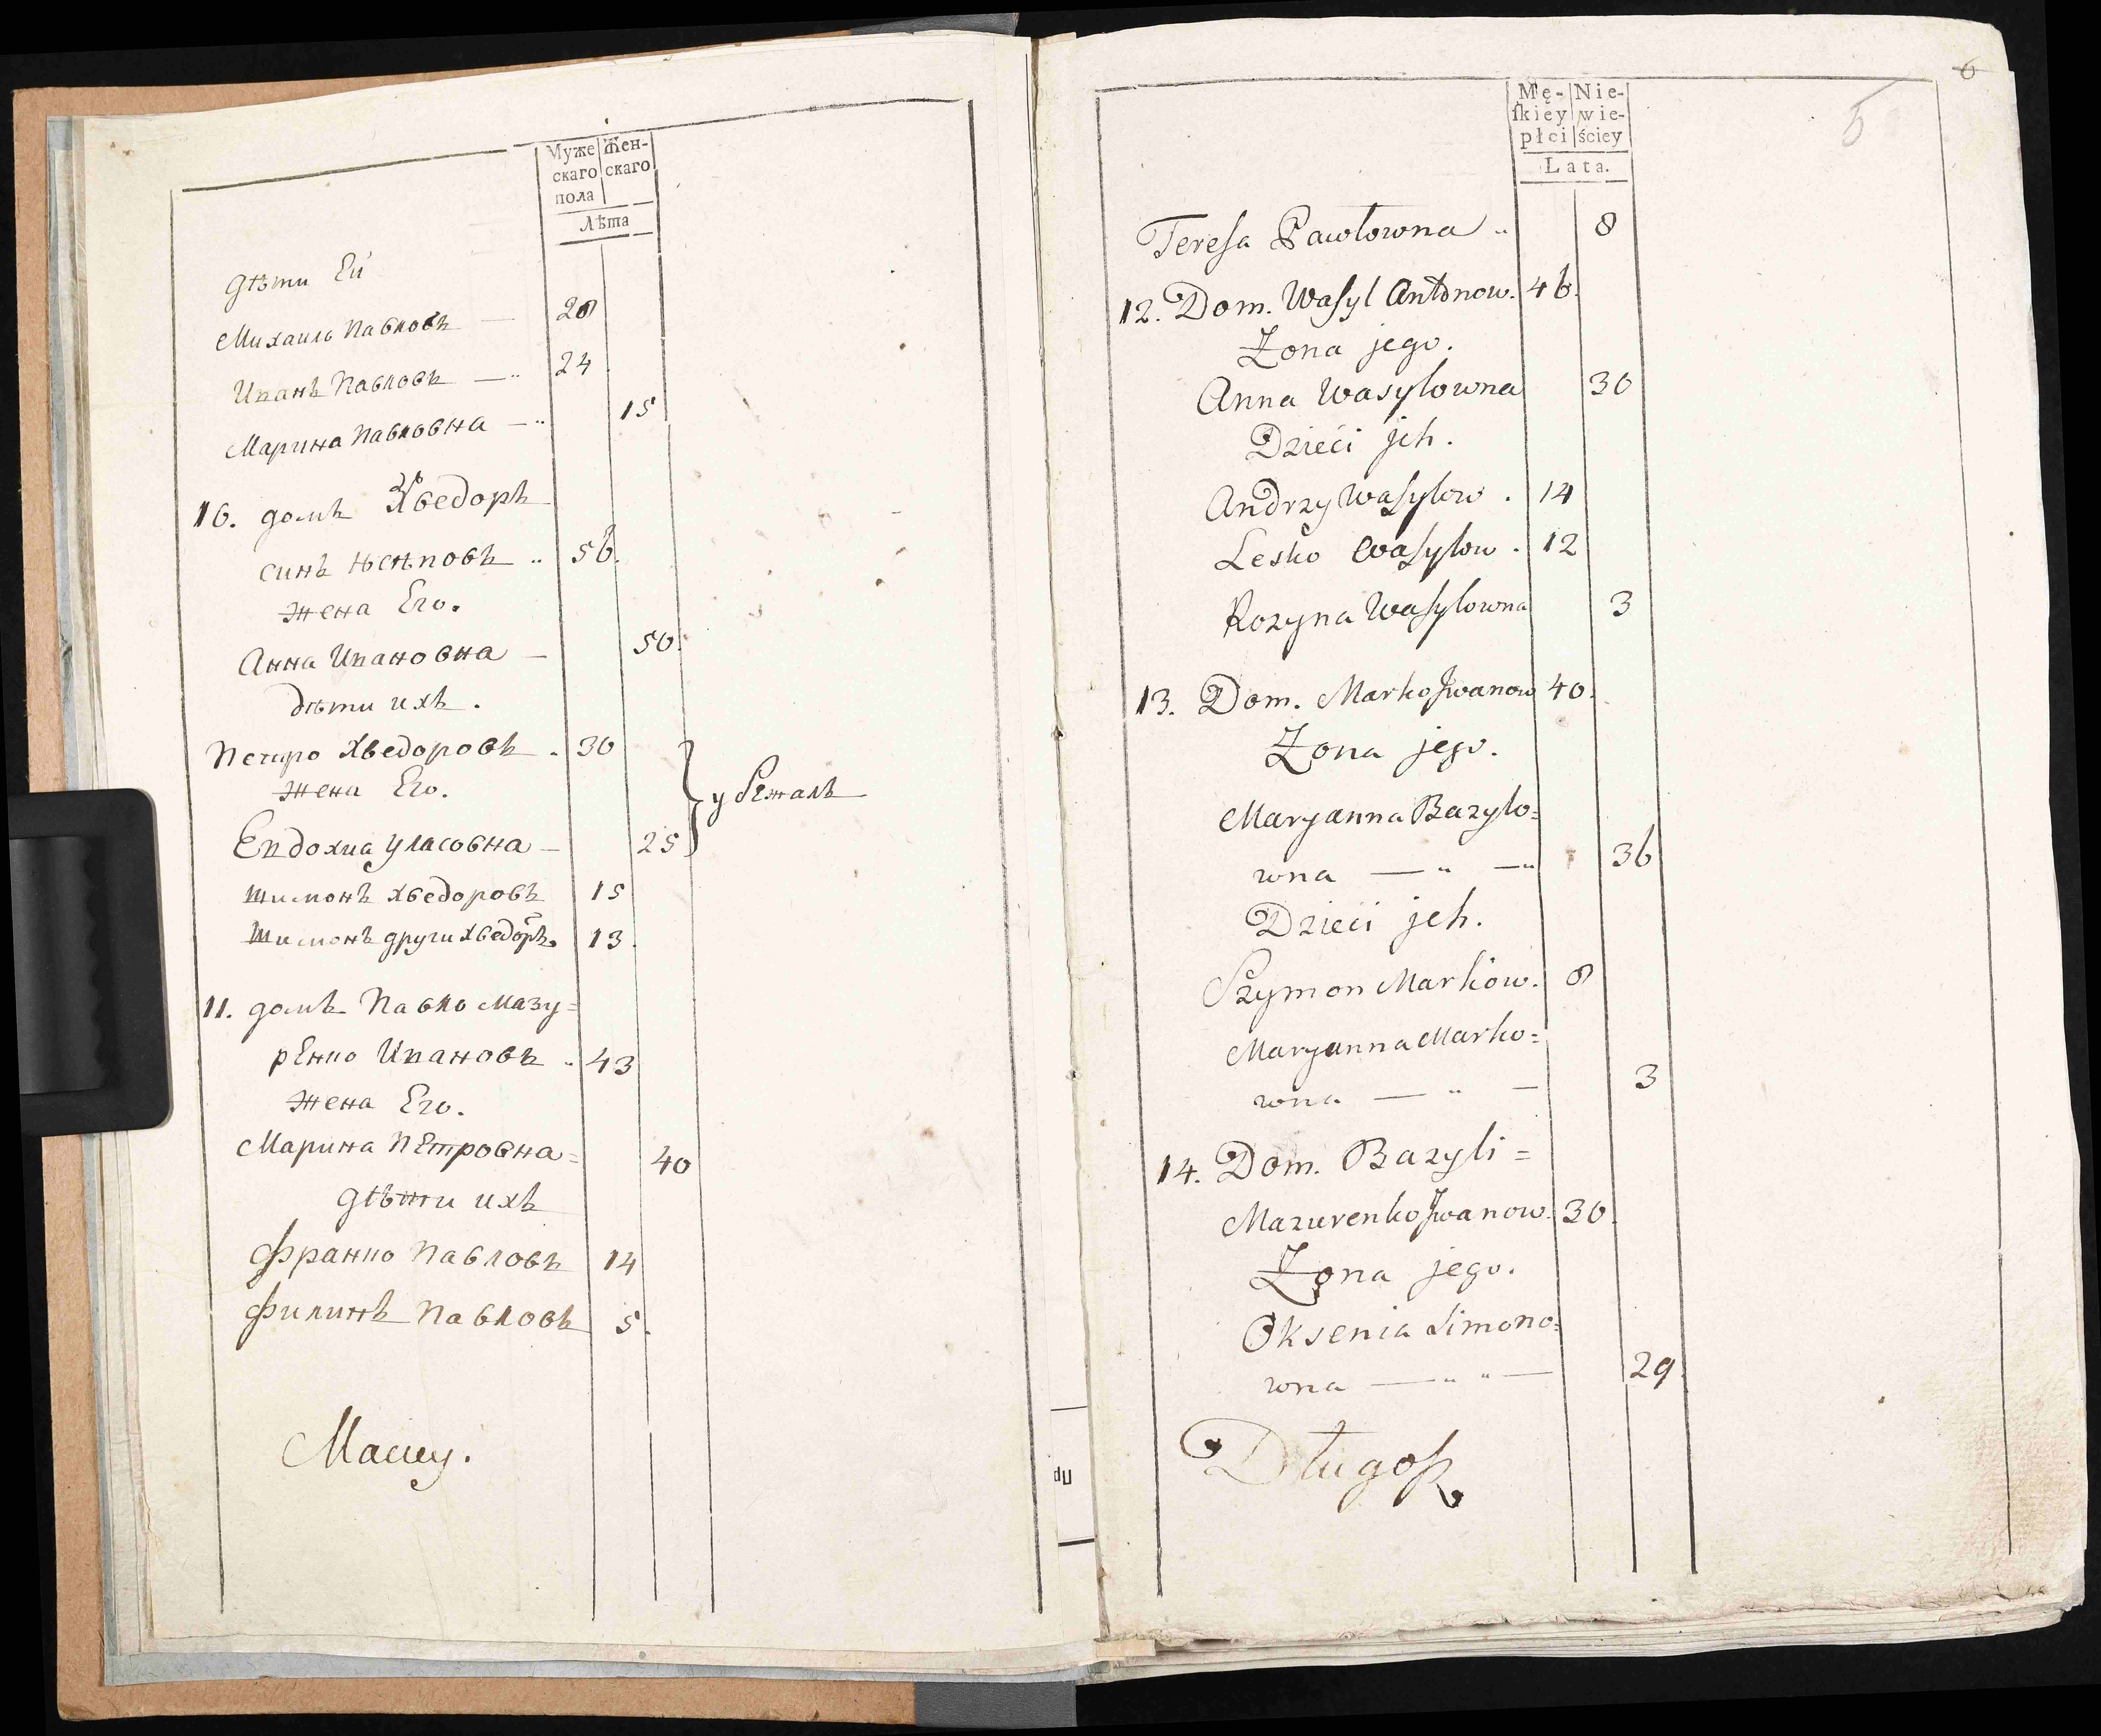 Муже
скаго
пола
Жен-
скаго
Лѣта
дѣти Ей
Михаилъ Павловъ — 28
Иванъ Павловъ — 24
Марина Павловна — 15
10. домъ Хведоръ
синъ .. 56.
жена Его.
Анна Ивановна — 50.
дѣти ихъ.
Петро Хведоровъ . 30
жена Его.
убежалъ
Евдохиа Уласовна — 25
Шимонъ Хведоровъ 15
Шимонъ други Хведоръ. 13.
11. домъ Павло Мазу=
рЕнко Ивановъ .. 43
жена Его.
Марина ПЕтровна= 40
дѣти ихъ
Франко Павловъ 14
Филипъ Павловъ 5.
Maciey.
6
5
Mę-
ſkiey
płci
Nie-
wie-
ściey
Lata.
Tereſa Pawłowna .. 8
12. Dom. Waſyl Antonow. 46.
Zona jego.
Anna Wasylowna 30
Dzieci jch.
Andrzy Waſylow . 14
Lesko Waſylow . 12
Rozyna Waſylowna 3
13. Dom. Marko Jwanow 40.
Zona jego.
Maryanna Bazylo=
wna — " — " 36
Dzieci jch.
Szymon Markow. 8
Maryanna Marko=
wna — " — 3
14. Dom. Bazyli =
Mazurenko Jwanow. 30.
Zona jego.
Oksenia Simono=
wna — " " — 29.
Długoſz